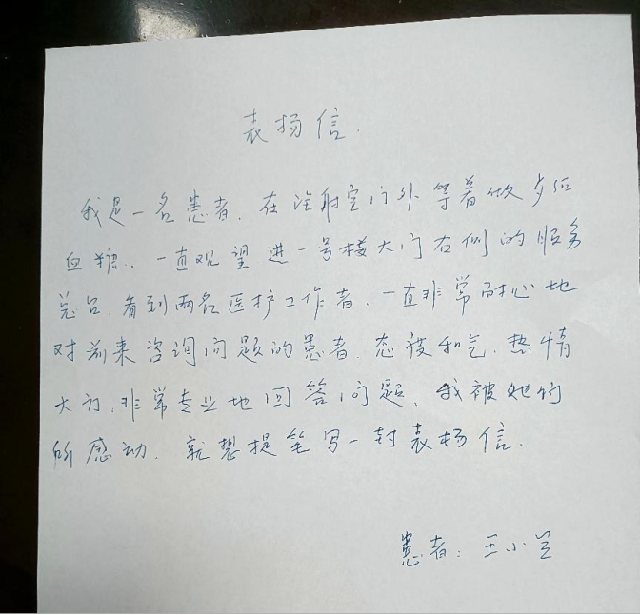 表扬信.
我是一名患者.在注射室门外等着做步后
血糖..一直观望进一号楼大门右侧的服务
总台.看到两名医护工作者.一直非常耐心地
对前来咨询问题的患者.态度和气.热情
大方.非常专业地回答问题.我被她们
所感动.就想提笔写一封表扬信.
患者:王小兰